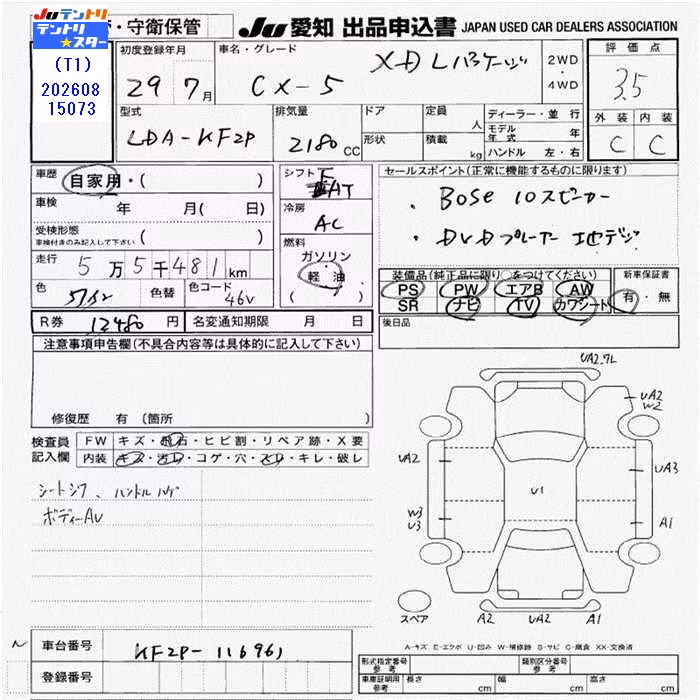 ・守衛保管 JU 愛知 出品申込書 JAPAN USED CAR DEALERS ASSOCIATION
JUテントリ
テントリ★スター
(T1)
202608
15073
初度登録年月 車名・グレード 2WD・4WD 評価点
29 7月 CX-5 XD Lパッケージ 3.5
型式 排気量 CC ドア 定員 人 ディーラー・並行 外装 内装
LDA-KF2P 2180 形状 積載 kg モデル年式 年 C C
ハンドル 左・右
車歴 自家用・( ) シフト F AT セールスポイント(正常に機能するものに限ります)
車検 年 月( 日) 冷房 AC ・BOSE 10スピーカー
受検形態 ( ) 燃料 ・DVDプレーヤー 地デジ
車検付きのみ記入して下さい
走行 5万5千481km ガソリン 軽油 ( )
装備品(純正品に限り○をつけてください) 新車保証書
色 色替 色コード 46V PS PW エアB AW 有・無
SR ナビ TV カワシート
R券 12480円 名変通知期限 月 日 後日品
注意事項申告欄(不具合内容等は具体的に記入して下さい)
修復歴 有 (箇所 )
検査員 FW キズ・飛石・ヒビ割・リペア跡・X要
記入欄 内装 キズ・汚レ・コゲ・穴・スレ・キレ・破レ
シートシワ、ハンドルハゲ
ボディーAU
UA2.7L
UA2
W2
UA2
UA3
U1
W3
U3
A1
スペア A2 UA2 A1
A-キズ E-エクボ U-凹み W-補修跡 S-サビ C-腐食 XX-交換済
車台番号 KF2P-116961
登録番号
型式指定番号 参考 類別区分番号 参考
車庫証明用 参考 長さ cm 幅 cm 高さ cm